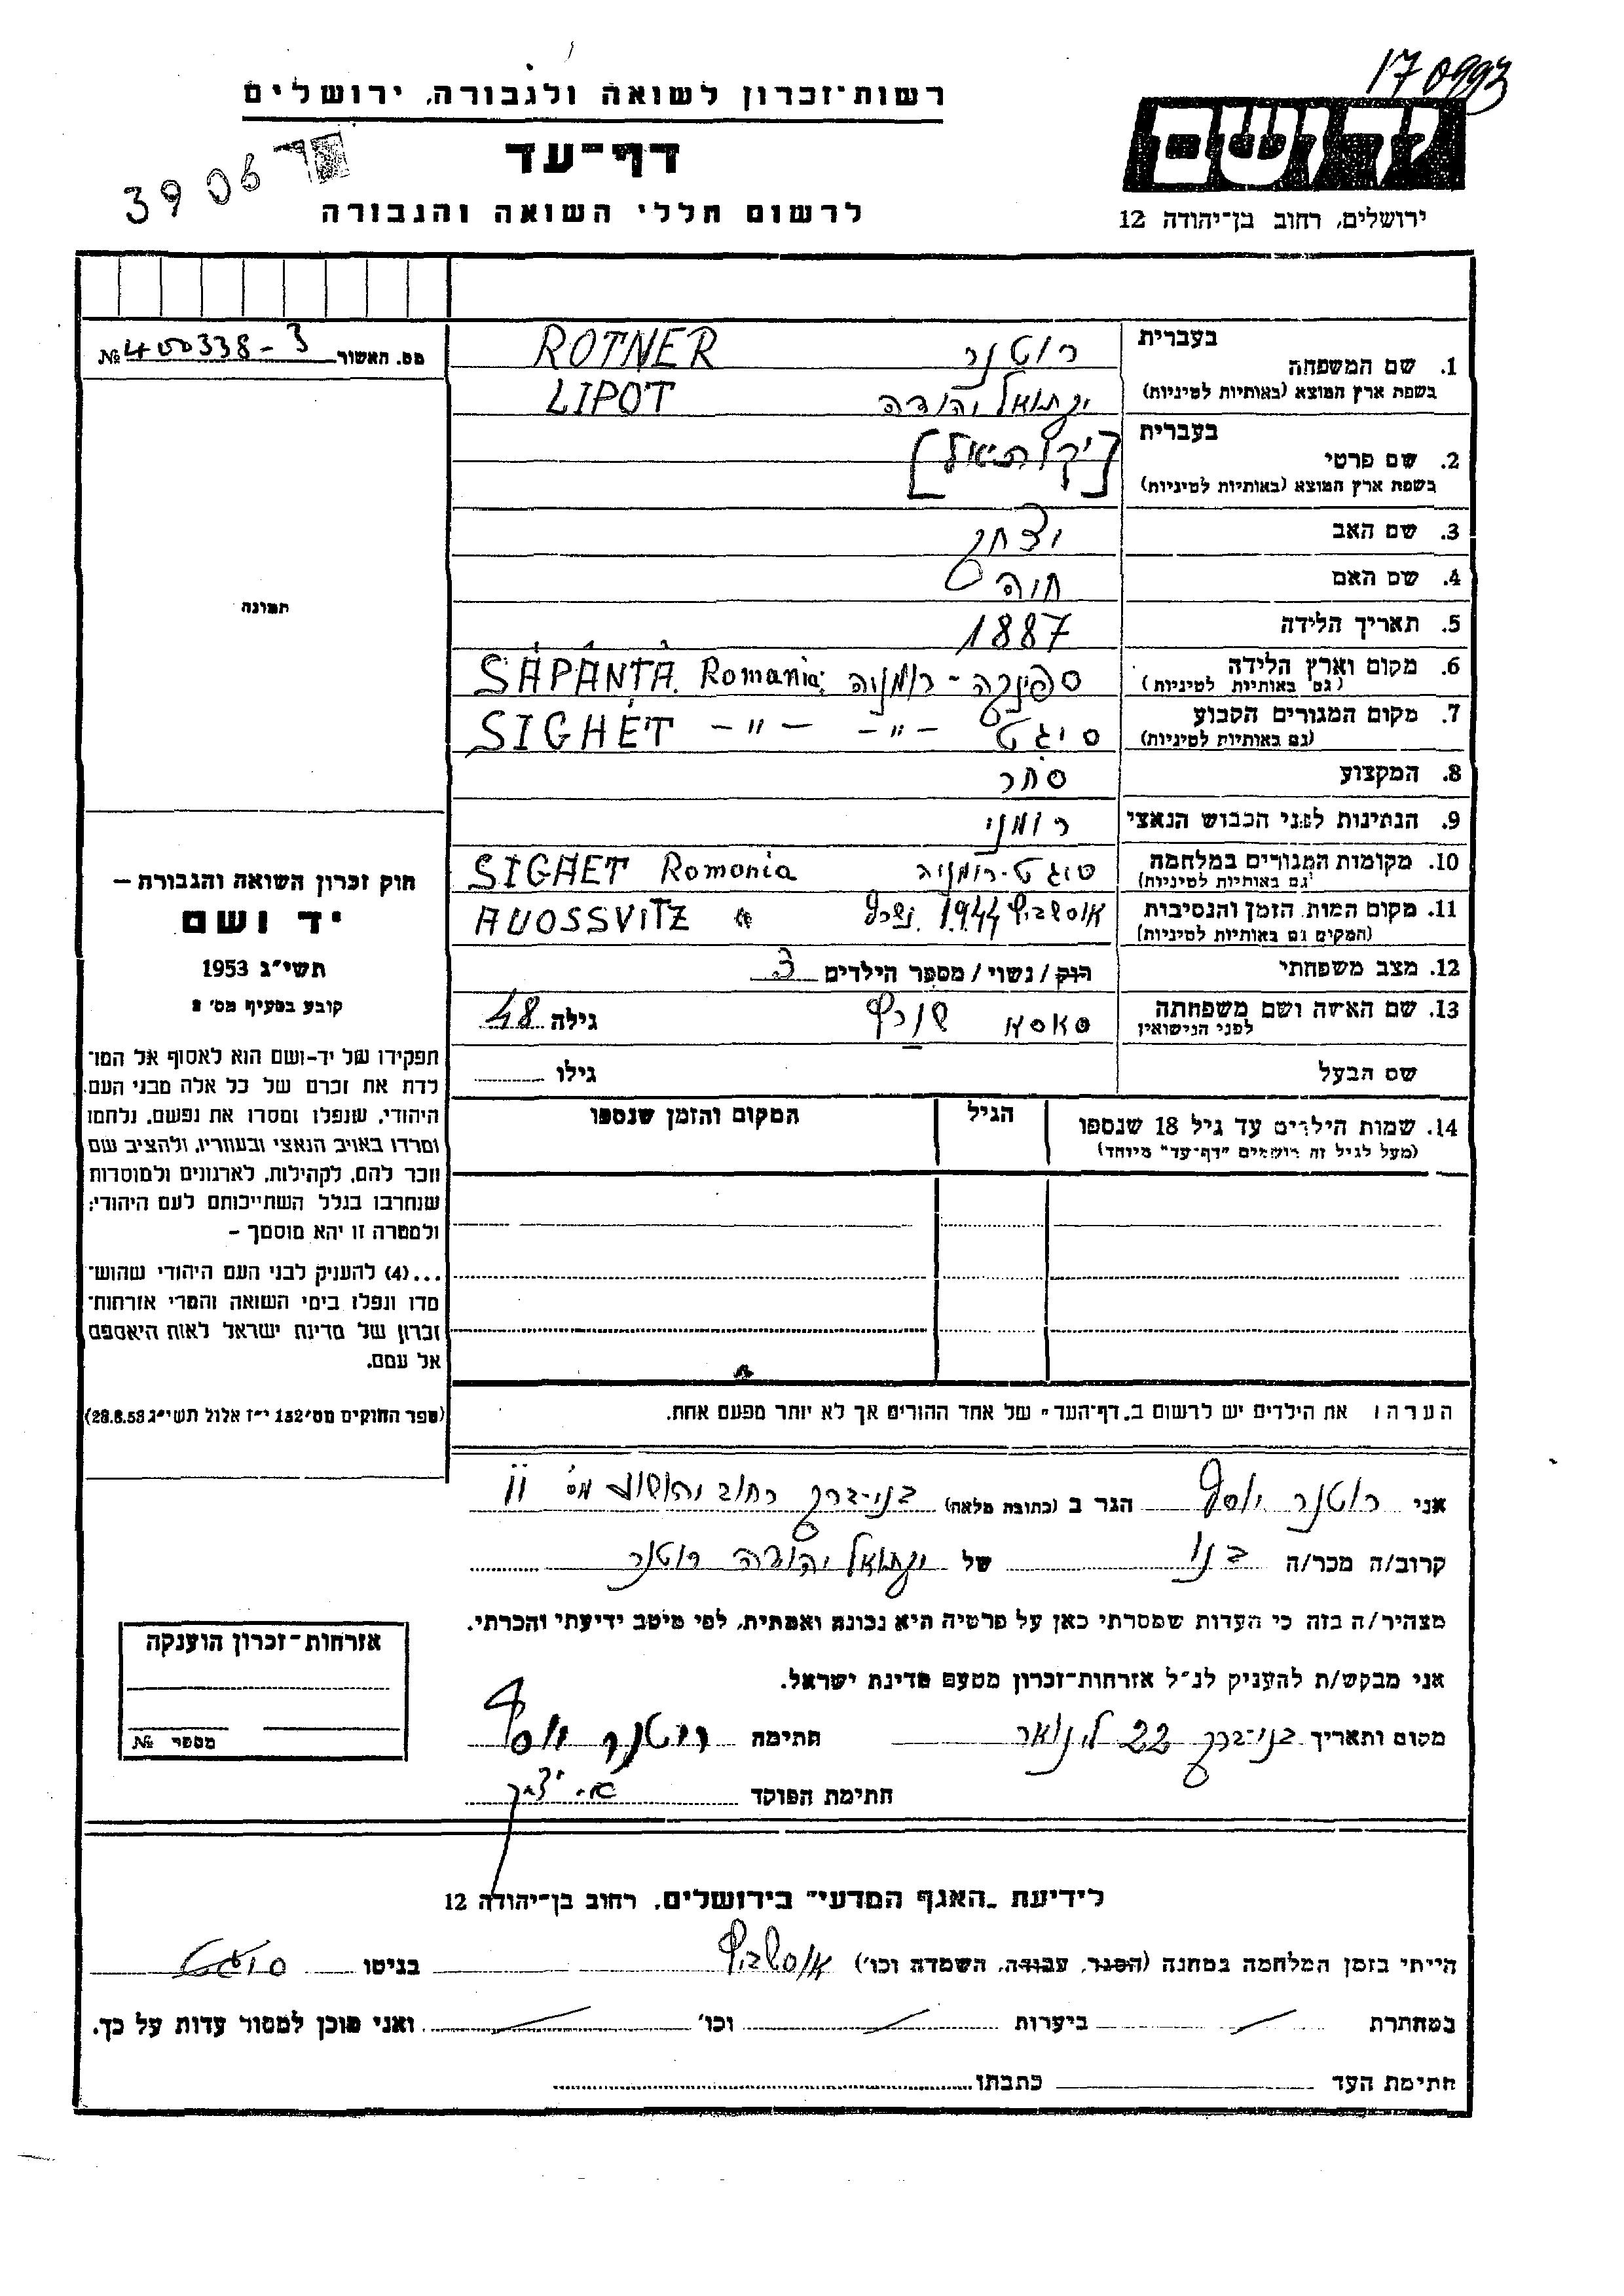 170993
רשות־זכרון לשואה ולגבורה, ירושלים
יד ושם
דף־עד
3906
לרשום חללי השואה והגבורה
ירושלים, רחוב בן־יהודה 12
מס. האשור № 400338-3
בעברית
1. שם המשפחה רוטנר ROTNER
בשפת ארץ המוצא (באותיות לטיניות) יקתואל יהודה LIPOT
בעברית
2. שם פרטי [יקותיאל]
בשפת ארץ המוצא (באותיות לטיניות)
3. שם האב יצחק
4. שם האם חוה
5. תאריך הלידה 1887
6. מקום וארץ הלידה ספינקה - רומניה SÁPÁNTA. Romania
(גם באותיות לטיניות)
7. מקום המגורים הקבוע סיגט - " - SIGHET - " -
(גם באותיות לטיניות)
8. המקצוע סחר
9. הנתינות לפני הכבוש הנאצי רומני
10. מקומות המגורים במלחמה סיגט-רומניה SIGHET Romonia
(גם באותיות לטיניות)
11. מקום המות, הזמן והנסיבות אוסשביץ 1944 נשרף AUOSSVITZ
(המקום גם באותיות לטיניות)
12. מצב משפחתי רוק / נשוי / מספר הילדים 3
13. שם האשה ושם משפחתה גילה 48
לפני הנישואין
שם הבעל גילו
14. שמות הילדים עד גיל 18 שנספו הגיל המקום והזמן שנספו
(מעל לגיל זה רושמים "דף־עד" מיוחד)
הערה: את הילדים יש לרשום ב„דף־העד" של אחד ההורים אך לא יותר מפעם אחת.
תמונה
חוק זכרון השואה והגבורה –
יד ושם
תשי"ג 1953
קובע בסעיף מס' 2
תפקידו של יד-ושם הוא לאסוף אל המו־
לדת את זכרם של כל אלה מבני העם
היהודי, שנפלו ומסרו את נפשם, נלחמו
ומרדו באויב הנאצי ובעוזריו, ולהציב שם
וזכר להם, לקהילות, לארגונים ולמוסדות
שנחרבו בגלל השתייכותם לעם היהודי;
ולמטרה זו יהא מוסמך –
...(4) להעניק לבני העם היהודי שהוש־
מדו ונפלו בימי השואה והמרי אזרחות־
זכרון של מדינת ישראל לאות היאספם
אל עמם.
(ספר החוקים מס' 132 י"ז אלול תשי"ג 28.8.53)
אני רוטנר יוסף הגר ב (כתובת מלאה) בני-ברק רחוב יהושע מס' 11
קרוב/ה מכר/ה בנו של יקתואל יהודה רוטנר
מצהיר/ה בזה כי העדות שמסרתי כאן על פרטיה היא נכונה ואמתית, לפי מיטב ידיעתי והכרתי.
אני מבקש/ת להעניק לנ"ל אזרחות־זכרון מטעם מדינת ישראל.
מקום ותאריך בני-ברק 22 לינואר חתימה רוטנר יוסף
חתימת הפוקד
אזרחות־זכרון הוענקה
מספר №
לידיעת „האגף המדעי" בירושלים, רחוב בן־יהודה 12
הייתי בזמן המלחמה במחנה (הסגר, עבודה, השמדה וכו') אוסשביץ בגיטו סיגט
במחתרת ביערות וכו' ואני מוכן למסור עדות על כך.
חתימת העד כתבתו